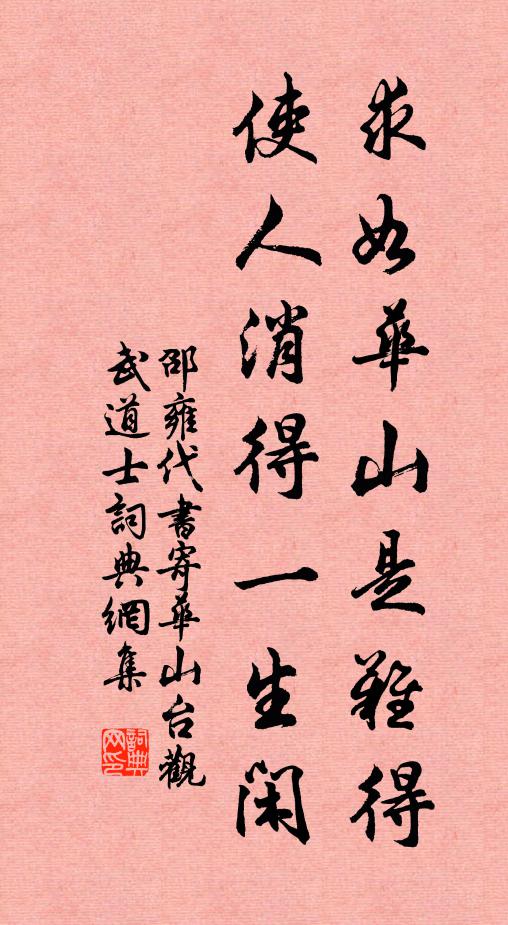 求如華山是難得
使人消得一生閑
邵雍代書寄華山台觀
武道士詞典網集
詞典
网印